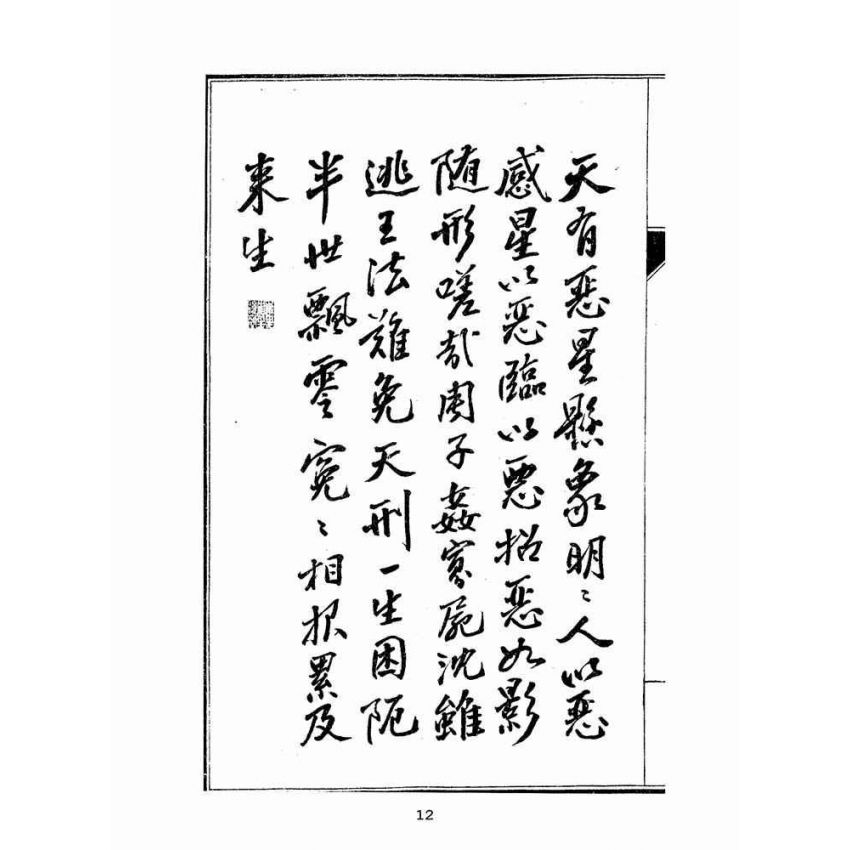 天有惡星懸象明〻人以惡
感星以惡臨以惡招惡如影
随形嗟哉周子姦寡屍沈雖
逃王法難免天刑一生困阨
半世飄零寃〻相报累及
来生
12